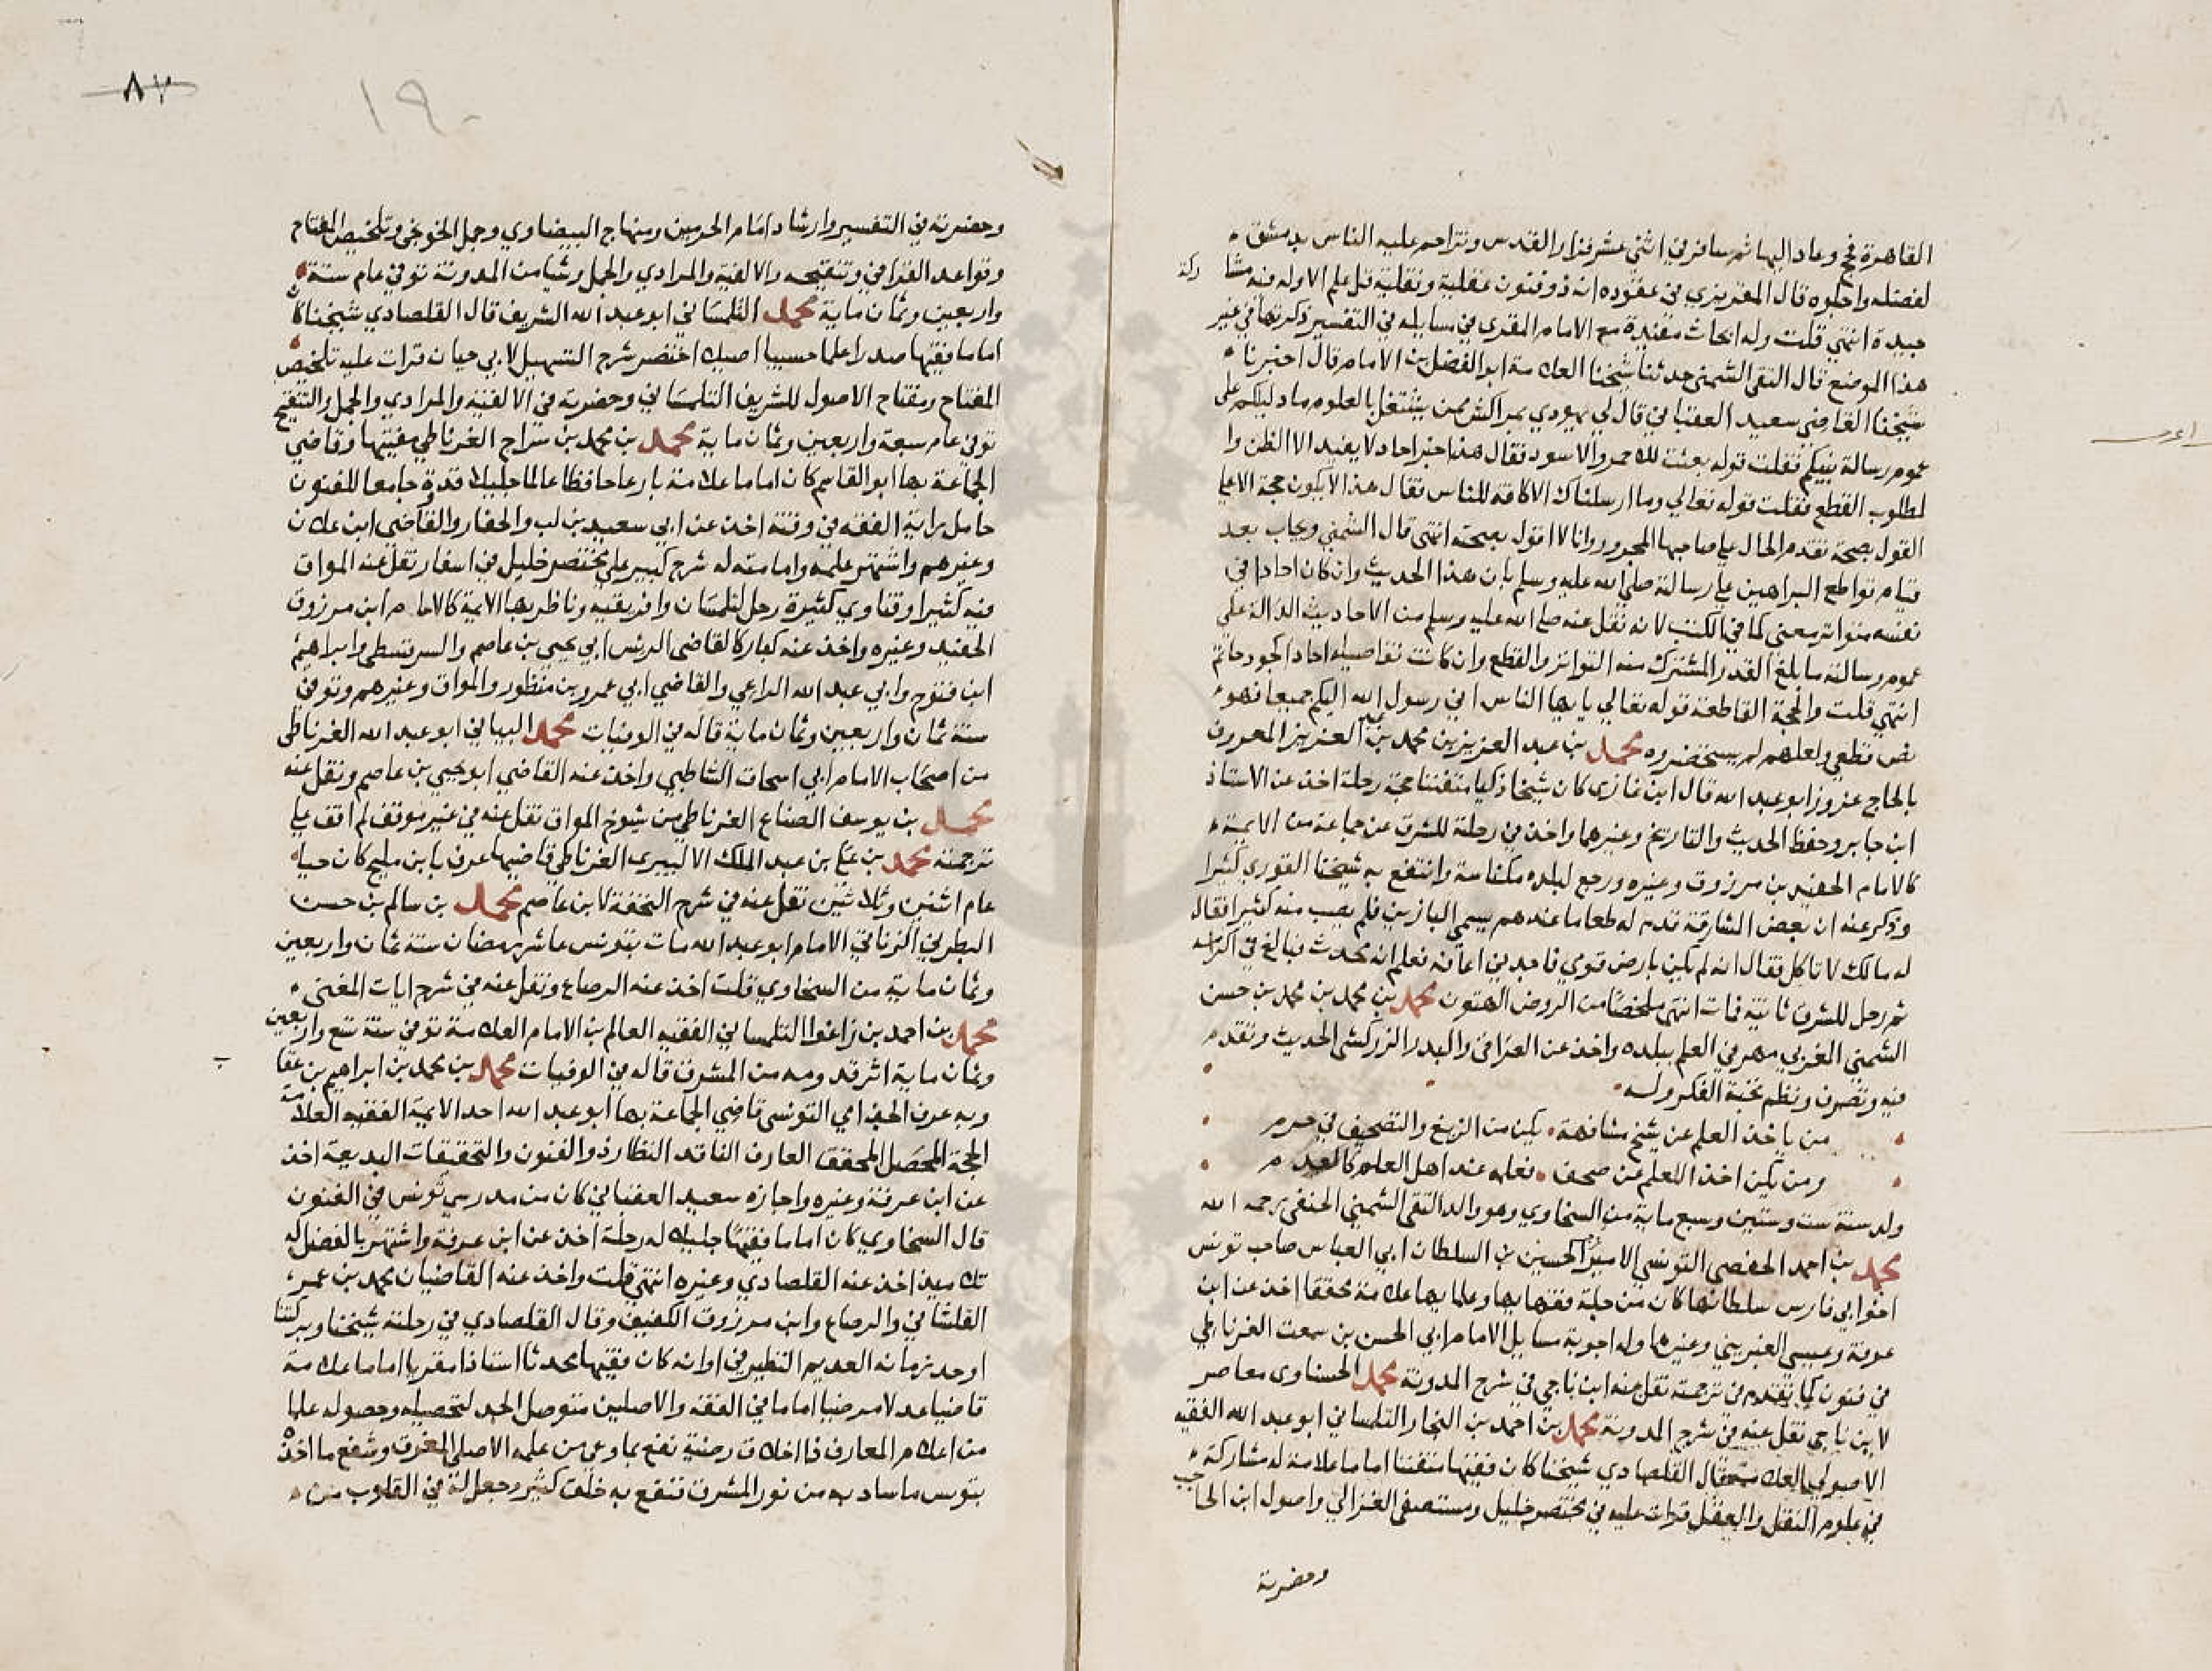 القاهرة فحج وعاد اليها ثم سافر في اثنتي عشر فزار القدس وتزاحم عليه الناس بدمشق
لفضله واجلوه قال المقريزي في عقوده انه ذو فنون عقلية ونقلية قل علم الا وله فيه مشاركة
جيدة انتهى قلت وله ابحاث مفيدة مع الامام المقري في مسايله في التفسير ذكرتها في غير
هذا الموضع قال التقى الشمني حدثنا شيخنا العلامة ابو الفضل بن الامام قال اخبرنا
شيخنا القاضي سعيد العقباني قال لي يهودي بمراكش ممن يشتغل بالعلوم ما دليلكم على
عموم رسالة نبيكم فقلت قوله بعثت للاحمر والاسود فقال هذا خبر احاد لا يفيد الا الظن وا
لمطلوب القطع فقلت قوله تعالي وما ارسلناك الا كافة للناس فقال هذا لا يكون حجة الا علي
القول بصحة تقدم الحال علي صاحبها المجرور وانا لا اقول بصحته انتهى قال الشمني ويجاب بعد
قيام قواطع البراهين علي رسالة صلي الله عليه وسلم بان هذا الحديث وان كان احادا في
نفسه متواتر معنى كما في الكتب لانه نقل عنه صلي الله عليه وسلم من الاحاديث الدالة على
عموم رسالته ما بلغ القدر المشترك منه التواتر والقطع وان كانت تفاصيله احادا كجود حاتم
انتهى قلت والحجة القاطعة قوله تعالي يايها الناس اني رسول الله اليكم جميعا فهو
نص قطعي ولعلهم لم يستحضروه محمد بن عبد العزيز بن محمد بن عبد العزيز المعروف
بالحاج عزوز ابو عبد الله قال ابن غازي كان شيخا ذكيا متفننا حجة رحلة اخذ عن الاستاذ
ابن جابر وحفظ الحديث والتاريخ وغيرهما واخذ في رحلة للشرق عن جماعة من الايمة
كالامام الحفيد بن مرزوق وغيره ورجع لبلده مكناسة وانتفع به شيخنا القوري كثيرا
وذكر عنه ان بعض الشارقة قدم له طعاما عندهم يسمي البازين فلم يصب منه كثيرا فقال
له مالك لا تاكل فقال انه لم يكن بارض قومي فاجدني اعافه فعلم انه محدث فبالغ في اكرامه
ثم رحل للشرق ثانية فمات انتهى ملخصا من الروض الهتون محمد بن محمد بن محمد بن حسن
الشمني المغربي مهر في العلم ببلده واخذ عن العراقي والبدر الزركشي الحديث وتقدم
فيه وتصرف ونظم نخبة الفكر وله
من ياخذ العلم عن شيخ مشافهة يكن من الزيغ والتصحيف في حرم
ومن يكن اخذ اللعلم عن صحف فعلمه عند اهل العلم كالعدم
ولد سنة ست وستين وسبع ماية من السخاوي وهو والد التقى الشمني الحنفي رحمه الله
محمد بن احمد الحفصي التونسي الامير الحسين بن السلطان ابي العباس صاحب تونس
اخو ابي فارس سلطانها كان من جلة فقهايها وعلمايها علامة محققا اخذ عن ابن
عرفة وعيسي الغبريني وغيره وله اجوبة مسايل الامام ابي الحسن بن سمعت الغرناطي
في فنون كما تقدم في ترجمته نقل عنه ابن ناجي في شرح المدونة محمد الحسناوى معاصر
لابن ناجي نقل عنه في شرح المدونة محمد بن احمد بن النجار التلمساني ابو عبد الله الفقيه
الاصولي العلامة قال القلصادي شيخنا كان فقيها متفننا اماما علامة له مشاركة
في علوم النقل والعقل قرات عليه في مختصر خليل ومستصفى الغزالي واصول ابن الحاجب
وحضرته
٨٧
١٩٠
وحضرته في التفسير وارشاد امام الحرمين ومنهاج البيضاوي وجمل الخونجي وتلخيص المفتاح
وقواعد القرافي وتنقيحه والالفية والمرادي والجمل وشيا من المدونة توفي عام ستة
واربعين وثمان ماية محمد التلمساني ابو عبد الله الشريف قال القلصادي شيخنا كان
اماما فقيها صدرا علما حسيبا اصيلا اختصر شرح التسهيل لابي حيان قرات عليه تلخيص
المفتاح ومفتاح الاصول للشريف التلمساني وحضرته في الالفية والمرادي والجمل والتنقيح
توفي عام سبعة واربعين وثمان ماية محمد بن محمد بن سراج الغرناطي مفتيها وقاضي
الجماعة بها ابو القاسم كان اماما علامة بارعا حافظا عالما جليلا قدوة جامعا للفنون
حامل راية الفقه في وقته اخذ عن ابي سعيد بن لب والحفار والقاضي ابن علان
وغيرهم واشتهر علمه وامامته له شرح كبير علي مختصر خليل في اسفار نقل عنه المواق
فيه كثيرا وفتاوي كثيرة رحل لتلمسان وافريقيه وناظر بها الايمة كالامام ابن مرزوق
الحفيد وغيره واخذ عنه كبار كالقاضي الريس ابي يحيى بن عاصم والسرقسطي وابراهيم
ابن فتوح وابي عبد الله الراعي والقاضي ابي عمرو بن منظور والمواق وغيرهم وتوفي
سنة ثمان واربعين وثمان ماية قاله في الوفيات محمد البياني ابو عبد الله الغرناطي
من اصحاب الامام ابي اسحاق الشاطبي واخذ عنه القاضي ابو يحيي بن عاصم ونقل عنه
محمد بن يوسف الصناع الغرناطي من شيوخ المواق نقل عنه في غير موقف لم اقف علي
ترجمته محمد بن علي بن عبد الملك الالبيري الغرناطي قاضيها عرف بابن مليح كان حيا
عام اثنين وثلاثين نقل عنه في شرح التحفة لابن عاصم محمد بن سالم بن حسن
البطرني الزناتي الامام ابو عبد الله مات بتونس عاشر رمضان سنة ثمان واربعين
وثمان ماية من السخاوي قلت اخذ عنه الرصاع ونقل عنه في شرح ايات المغنى
محمد بن احمد بن زاغوا التلمساني الفقيه العالم بن الامام العلامة توفي سنة تسع واربعين
وثمان ماية اثر قدومه من المشرق قاله في الوفيات محمد بن محمد بن ابراهيم بن عقاب
وبه عرف الجذامي التونسي قاضي الجماعة بها ابو عبد الله احد الايمة الفقيه العلامة
الحجة المحصل المحقق العارف الناقد النظار ذو الفنون والتحقيقات البديعة اخذ
عن ابن عرفة وغيره واجازه سعيد العقباني كان من مدرسي تونس في الفنون
قال السخاوي كان اماما فقيها جليلا له رحلة اخذ عن ابن عرفة واشتهر بالفضل له
تلاميذ اخذ عنه القلصادي وغيره انتهى قلت واخذ عنه القاضيان محمد بن عمر
القلشاني والرصاع وابن مرزوق الكفيف وقال القلصادي في رحلته شيخنا وبركتنا
اوحد زمانه العديم النظير في اوانه كان فقيها محدثا استاذا مقريا اماما علامة
قاضيا عدلا مرضيا اماما في الفقه والاصلين متوصل الجد لتحصيله وحصوله علما
من اعلام المعارف ذا اخلاق رضية نفع بما وعى من علمه الاصلي المغرق وشفع ما اخذه
بتونس ما ساد به من نور المشرق فنفع به خلق كثير وجعل له في القلوب من